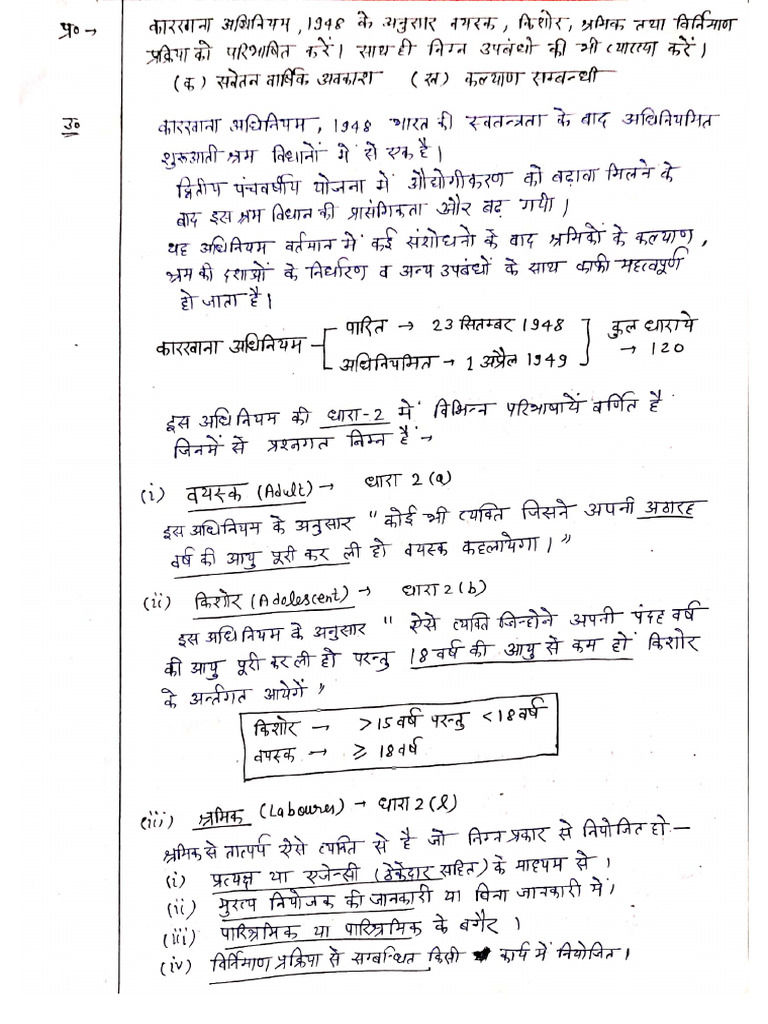 प्र० → कारखाना अधिनियम, 1948 के अनुसार वयस्क, किशोर, श्रमिक तथा विर्निमाण
प्रक्रिया को परिभाषित करें। साथ ही निम्न उपबंधो की भी व्याख्या करें।
(क) सवेतन वार्षिक अवकाश (ख) कल्याण सम्बन्धी
उ० कारखाना अधिनियम, 1948 भारत की स्वतन्त्रता के बाद अधिनियमित
शुरूआती श्रम विधानों में से एक है।
द्वितीय पंचवर्षीय योजना में औद्योगीकरण को बढ़ावा मिलने के
बाद इस श्रम विधान की प्रासंगिकता और बढ़ गयी।
यह अधिनियम वर्तमान में कई संशोधनो के बाद श्रमिकों के कल्याण,
श्रम की दशाओं के निर्धारण व अन्य उपबंधों के साथ काफी महत्वपूर्ण
हो जाता है।
कारखाना अधिनियम
पारित → 23 सितम्बर 1948
अधिनियमित → 1 अप्रैल 1949
कुल धाराये
→ 120
इस अधिनियम की धारा-2 में विभिन्न परिभाषायें वर्णित है
जिनमें से प्रश्नगत निम्न हैं →
(i) वयस्क (Adult) → धारा 2(a)
इस अधिनियम के अनुसार " कोई भी व्यक्ति जिसने अपनी अठारह
वर्ष की आयु पूरी कर ली हो वयस्क कहलायेगा।"
(ii) किशोर (Adolescent) → धारा 2(b)
इस अधिनियम के अनुसार " ऐसे व्यक्ति जिन्होने अपनी पंद्रह वर्ष
की आयु पूरी कर ली हो परन्तु 18 वर्ष की आयु से कम हों किशोर
के अर्न्तगत आयेगें "
किशोर → >15 वर्ष परन्तु <18 वर्ष
वयस्क → ≥ 18 वर्ष
(iii) श्रमिक (Laboures) → धारा 2(l)
श्रमिक से तात्पर्य ऐसे व्यक्ति से है जो निम्न प्रकार से नियोजित हो —
(i) प्रत्यक्ष या एजेन्सी (ठेकेदार सहित) के माध्यम से।
(ii) मुख्य नियोजक की जानकारी या बिना जानकारी में।
(iii) पारिश्रमिक या पारिश्रमिक के बगैर।
(iv) विर्निमाण प्रक्रिया से सम्बन्धित किसी कार्य में नियोजित।